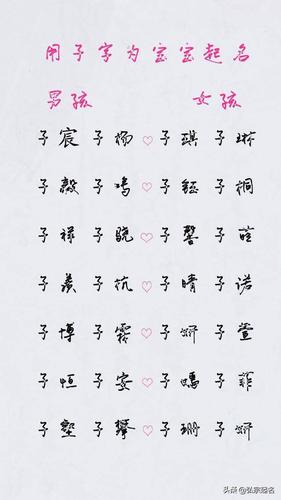 用子字为宝宝起名
男孩 女孩
子宸 子杨 ♡ 子琪 子琳
子毅 子鸣 ♡ 子钰 子桐
子祥 子骁 ♡ 子馨 子暄
子羡 子杭 ♡ 子晴 子诺
子博 子霖 ♡ 子妍 子萱
子恒 子安 ♡ 子嫣 子菲
子塾 子攀 ♡ 子珊 子妍
头条@弘宗起名